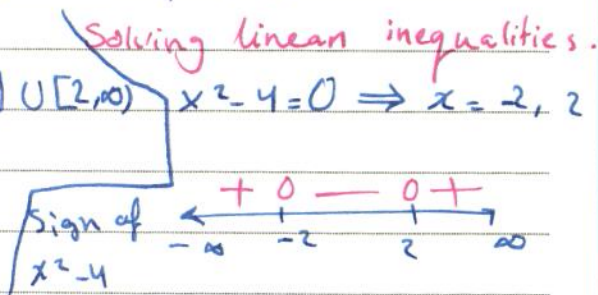 Solving linear inequalities.
) U [2,∞) x²-4=0 ⇒ x = -2, 2
+ 0 — 0 +
Sign of
x²-4
-∞ -2 2 ∞